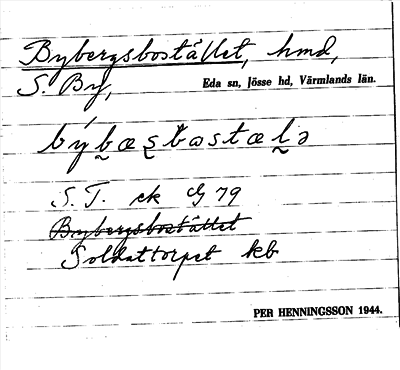 Bybergsbostället, hmd,
S. By, Eda sn, Jösse hd, Värmlands län.
býb̰æs̰bostæl̰ə
S. T. ek G 79
Bybergsbostället
Soldattorpet kb
PER HENNINGSSON 1944.